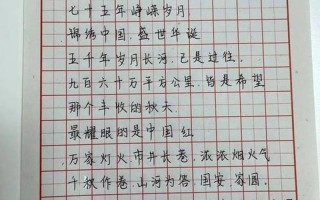 七十五年峥嵘岁月
锦绣中国,盛世华诞
五千年岁月长河,已是过往,
九百六十万平方公里,皆是希望
那个丰收的秋天
最耀眼的是中国红
万家灯火市井长卷,浓浓烟火气
千秋作卷,山河为答,国安,家圆。